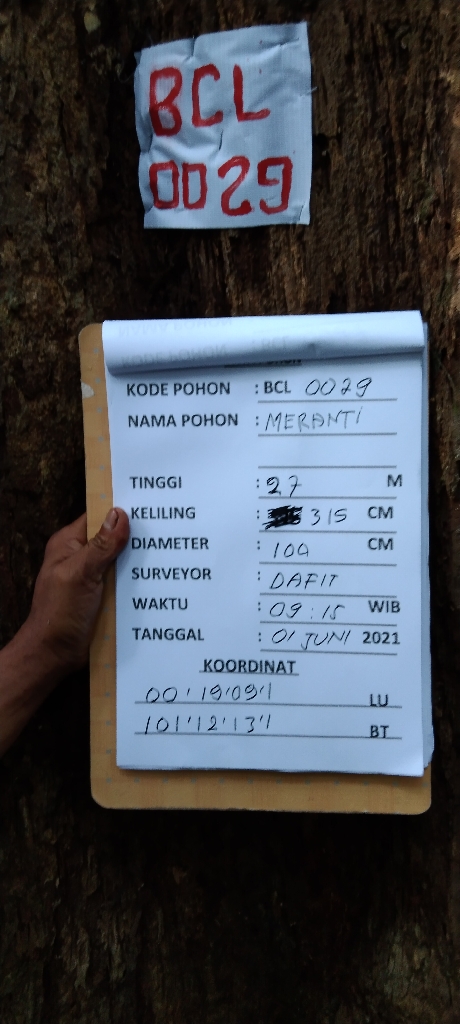 BCL
0029
KODE POHON : BCL 0029
NAMA POHON : MERANTI
TINGGI : 27 M
KELILING : 315 CM
DIAMETER : 100 CM
SURVEYOR : DAFIT
WAKTU : 09:15 WIB
TANGGAL : 01 JUNI 2021
KOORDINAT
00'19'09'1 LU
101'12'13'1 BT